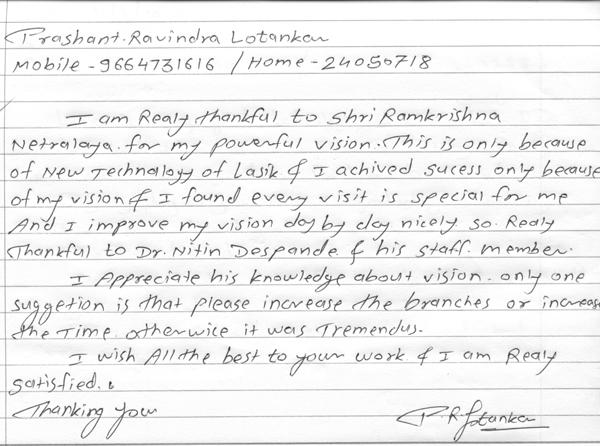 Prashant. Ravindra Lotankar
Mobile - 9664731616 / Home - 24050718
I am Realy thankful to Shri Ramkrishna
Netralaya. for my powerful vision. This is only because
of New Technology of Lasik & I achived sucess only because
of my vision & I found every visit is special for me
And I improve my vision day by day nicely so. Realy
Thankful to Dr. Nitin Despande & his staff. member.
I Appreciate his knowledge about vision. only one
suggetion is that please increase the branches or increase
the Time. otherwice it was Tremendus.
I wish All the best to your work & I am Realy
satisfied.
Thanking you
P.R. Lotankar